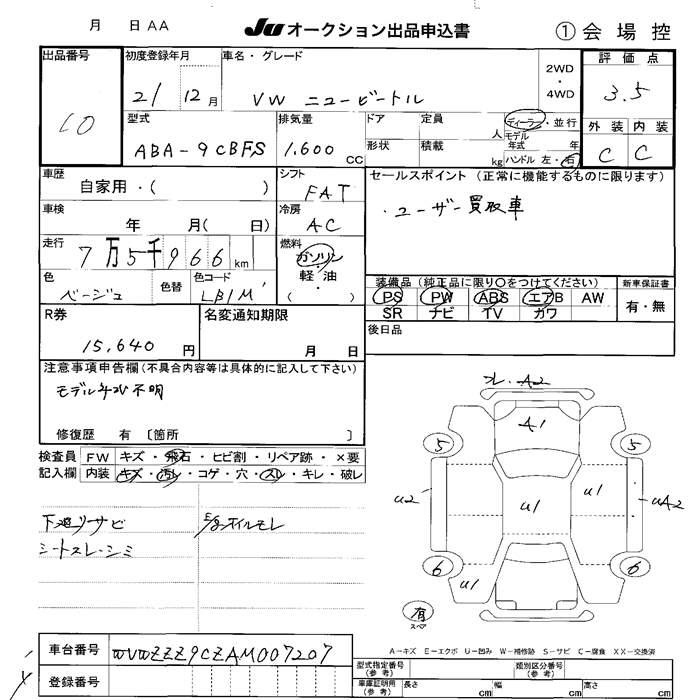 月 日 AA JU オークション出品申込書 ① 会場控
出品番号 初度登録年月 車名・グレード 2WD・4WD 評価点
10 21 12月 VW ニュービートル 3.5
型式 排気量 ドア 定員 人 ディーラー・並行 外装 内装
ABA-9CBFS 1,600 CC 形状 積載 kg モデル年式 年 ハンドル 左・右 C C
車歴 シフト セールスポイント (正常に機能するものに限ります)
自家用・( ) FAT ・ユーザー買取車
車検 冷房
年 月( 日) AC
走行 燃料
7万5千966km ガソリン・軽油
色 色替 色コード ( ) 装備品 (純正品に限り○をつけてください) 新車保証書
ベージュ LB1M PS PW ABS エアB AW 有・無
SR ナビ TV カワ
R券 名変通知期限 後日品
15,640円 月 日
注意事項申告欄 (不具合内容等は具体的に記入して下さい)
モデル年式不明
修復歴 有 〔箇所 〕
検査員 FW キズ・飛石・ヒビ割・リペア跡・×要
記入欄 内装 キズ・汚れ・コゲ・穴・スレ・キレ・破レ
下廻りサビ E/gオイルモレ
シートスレ・シミ
A2
A1
5 5
U2 U1 U1 UA2
6 6
U1
有
スペア
A-キズ E-エクボ U-凹み W-補修跡 S-サビ C-腐食 XX-交換済
車台番号 WVWZZZ9CZAM007207 型式指定番号(参考) 類別区分番号(参考)
登録番号 車庫証明用(参考) 長さ cm 幅 cm 高さ cm